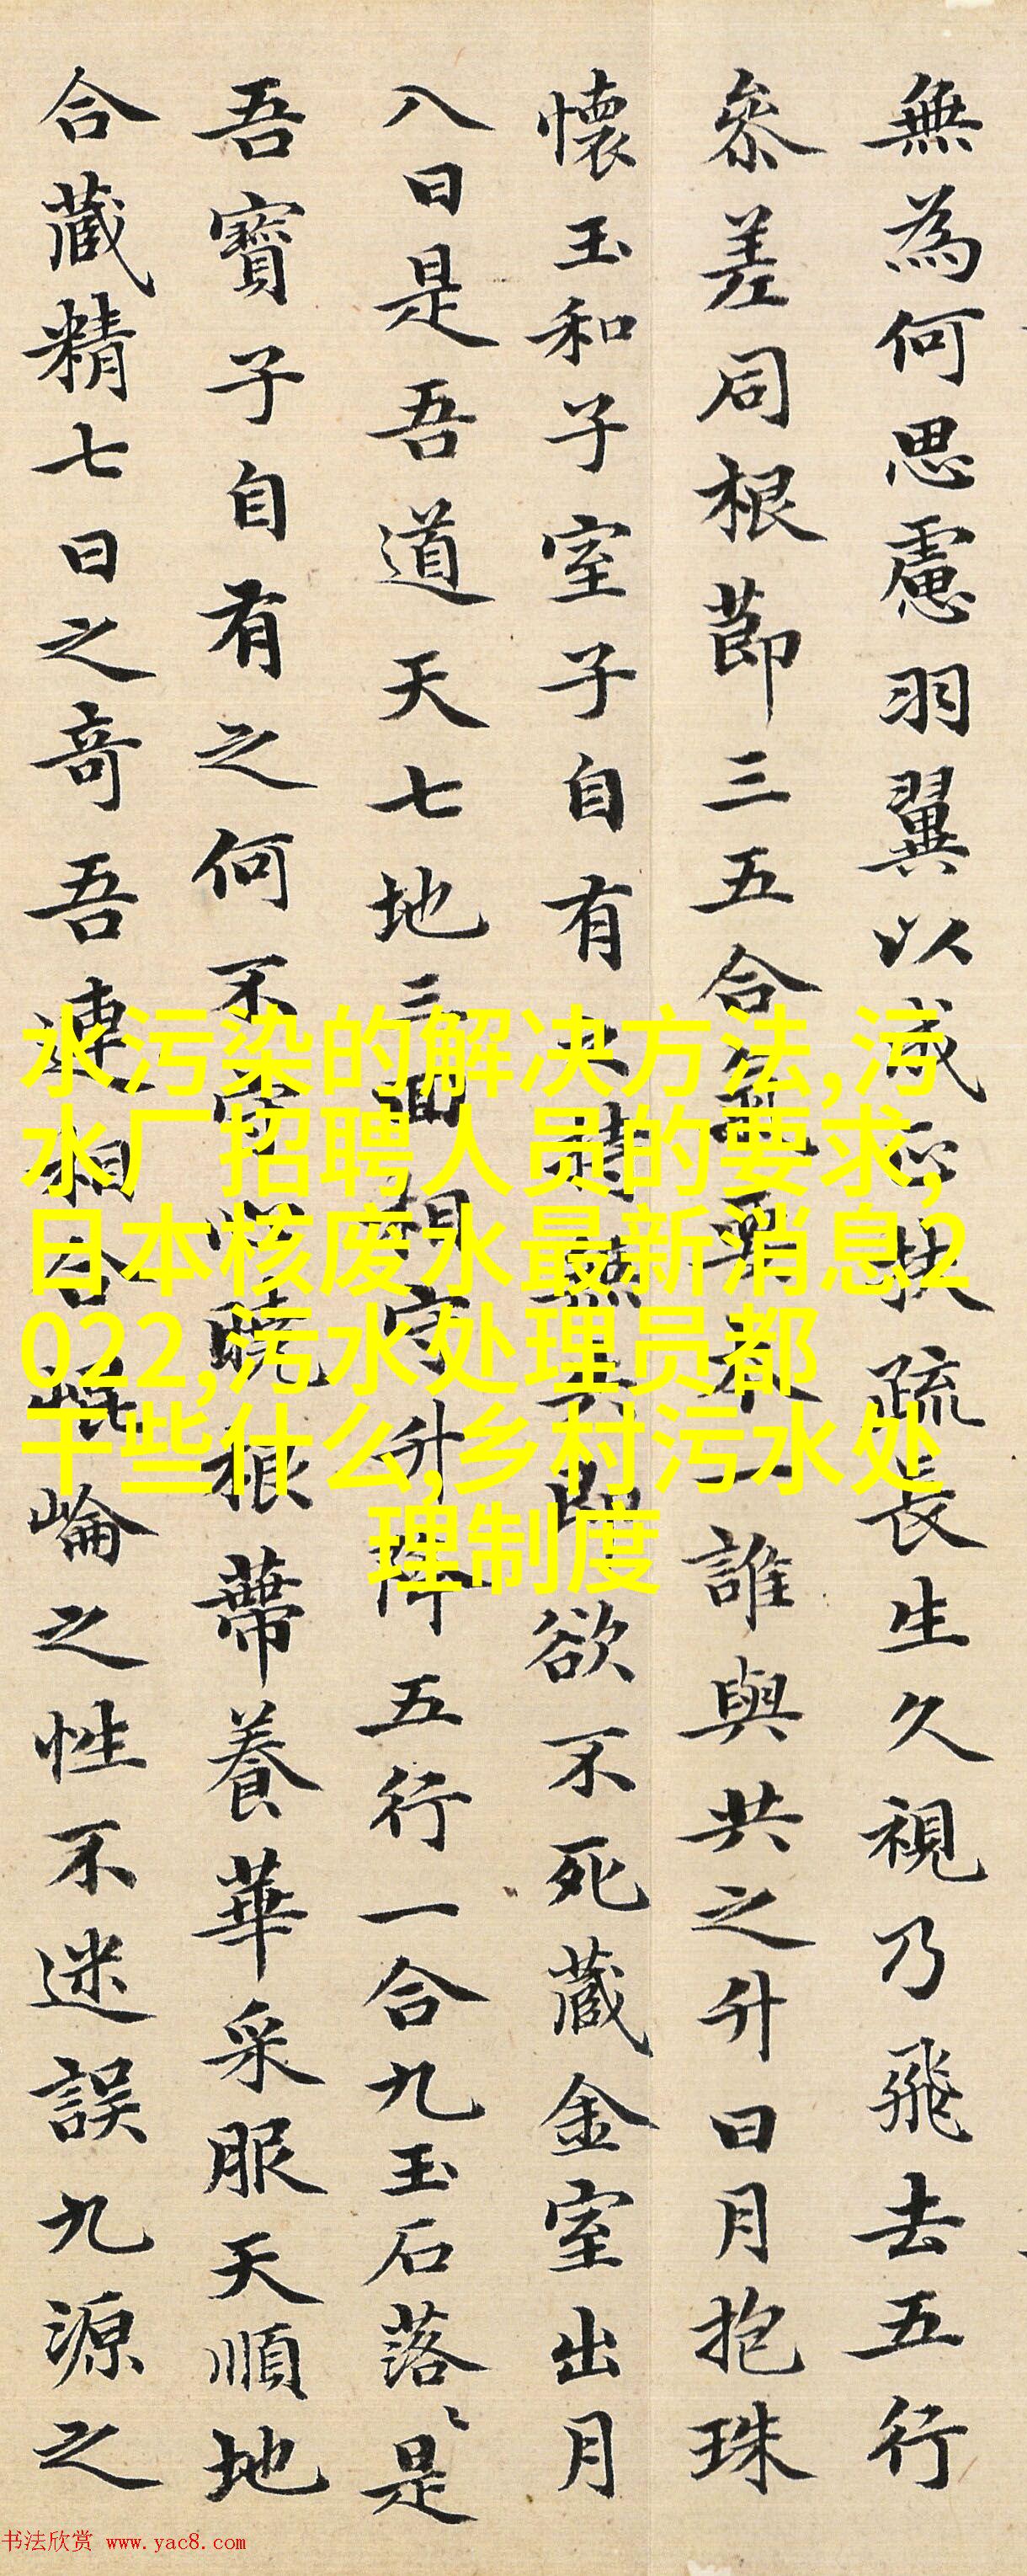 無為何思慮羽翼以成正扶疏長生久視乃飛去五行
參差同根節三五合氣要本一誰與共之升日月抱珠
懷玉和子室子自有之持無失即欲不死藏金室出月
八日是吾道天七地三回相守升降五行一合九玉石落〻是
吾寶子自有之何不守心曉根蔕養華采服天順地
合藏精七日之奇吾連相合崐崘之性不迷誤九源之
水污染的解决方法,污
水厂招聘人员的要求,
日本核废水最新消息2
022,污水处理员都
干些什么,乡村污水处
理制度
书法欣赏 www.yac8.com